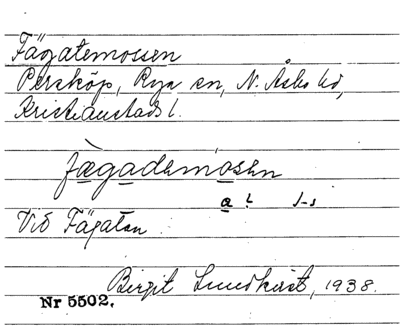 Fägatemossen
Persköp, Rya sn, N. Åsbo hd,
Kristianstads l.
fægademósen
a ? s-s
Vid Fägatan
Birgit Lundkvist, 1938.
Nr 5502.